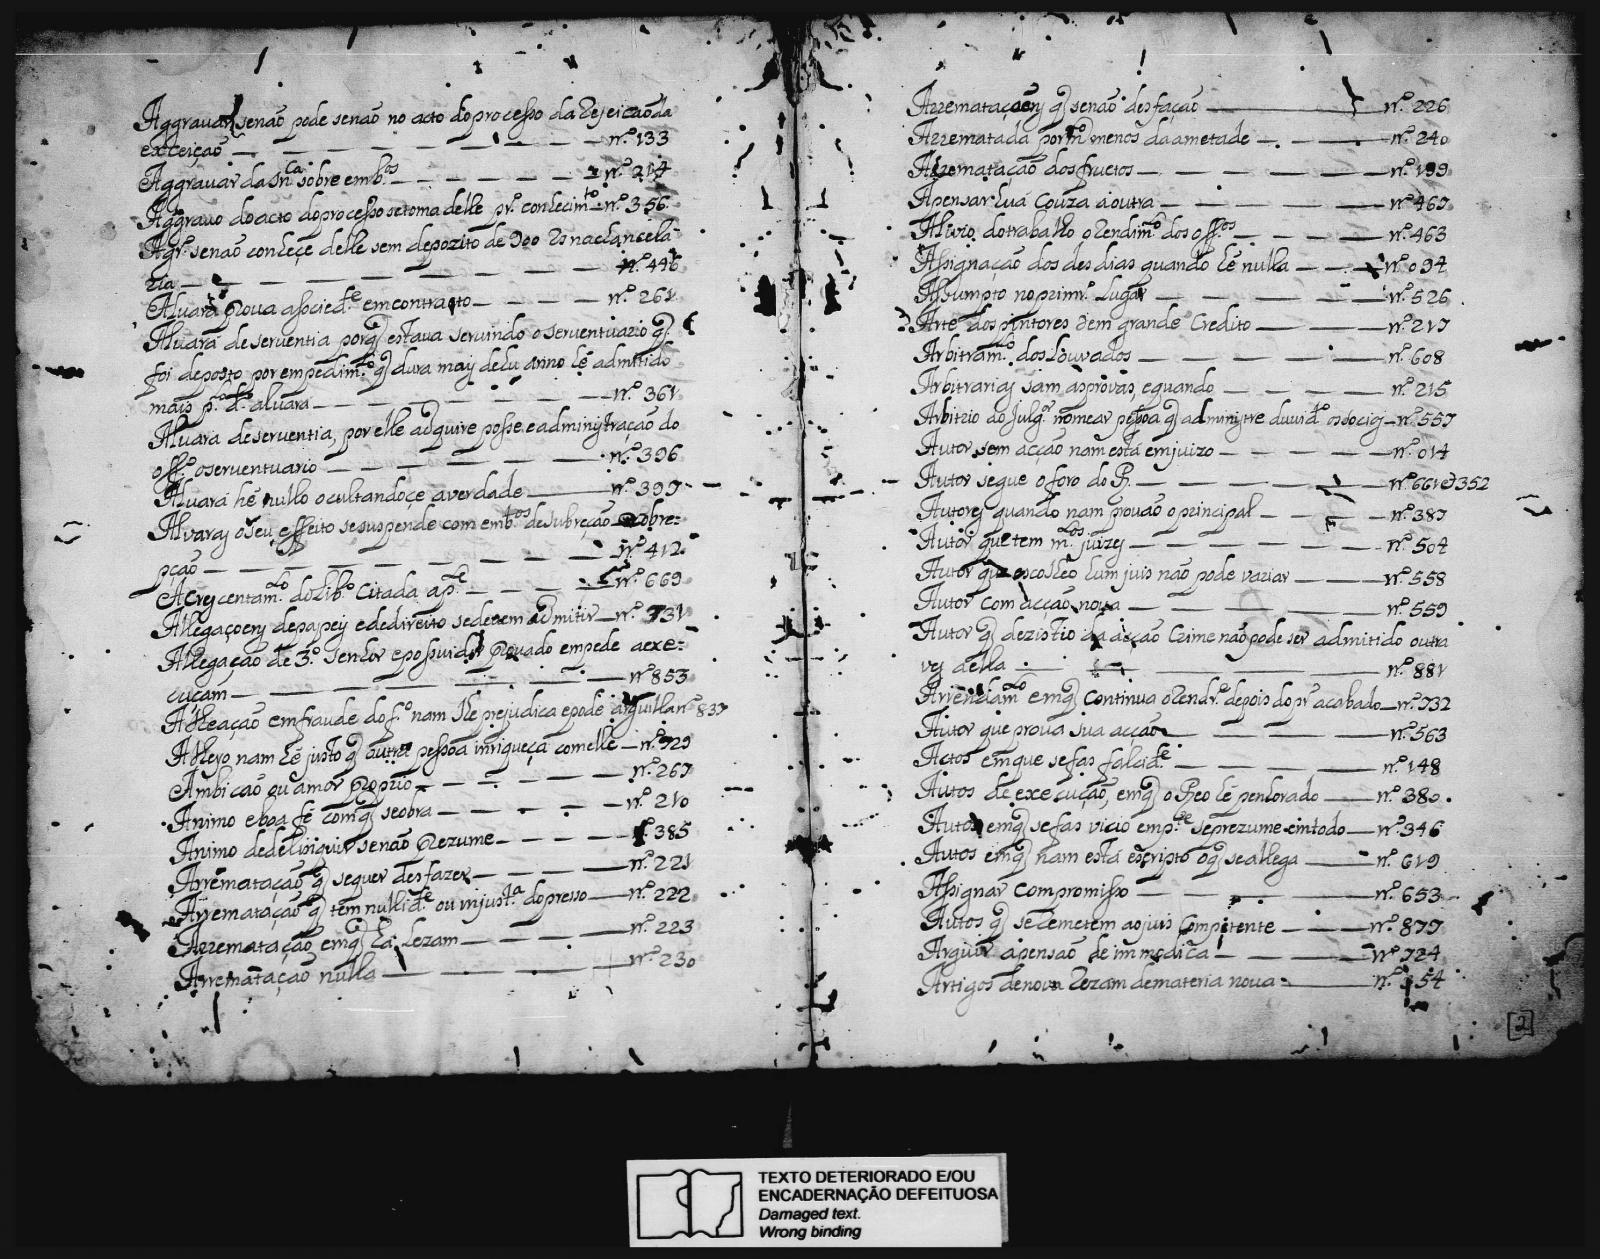 Aggravar senaõ pode senaõ no acto do processo da Rejeicaõ da
exceiçaõ — nº 133
Aggravar da Snca sobre embos — nº 214
Aggravo do acto do processo se toma delle pr. conhecimto nº 356
Agr. senaõ conheçe delle sem depozito de 900 rs na chancela
ria — nº 446
Alvará prova a sociede em contracto — nº 261
Alvará de serventia porq estava servindo o serventuario q
foi deposto por empedimto q dura mais de hũ anno hé admitido
mais pº dº alvara — nº 361
Alvara de serventia, por elle adquire posse e administraçaõ do
offº o serventuario — nº 396
Alvará hé nullo ocultandoçe a verdade — nº 399
Alvaras o seu effeito se suspende com embtos de subreçaõ obre=
pçaõ — nº 412
Acrescentamto do Libº Citada a pte — nº 669
Allegaçoens de papeis e de direito se devem admitir — nº 731
Allegaçaõ de 3º senhor e possuidor provado empede a exe=
cuçam — nº 853
Alheaçaõ em fraude do fº nam lhe prejudica e pode arguilla nº 837
Alheyo nam hé justo q outra pessoa inriqueça com elle — nº 929
Ambicaõ ou amor proprio — nº 267
Animo e boa fé com q se obra — nº 210
Animo de delinquir senaõ Prezume — nº 385
Arrematacaõ q se quer desfazer — nº 221
Arrematacaõ q tem nullide ou injusta do preso — nº 222
Arrematacaõ em q há lezam — nº 223
Arrematacaõ nulla — nº 230
Arrematacaõens q senaõ desfaçaõ — nº 226
Arrematada por mto menos da ametade — nº 240
Arremataçaõ dos fructos — nº 199
Apensar huã Couza a outra — nº 467
Alivio do trabalho o Rendimto dos offos — nº 463
Assignaçaõ dos des dias quando hé nulla — nº 094
Assumpto no primrº Lugar — nº 526
Arte dos pintores tem grande Credito — nº 217
Arbitramto dos Louvados — nº 608
Arbitrarias sam as provas, e quando — nº 215
Arbitrio do Julgor nomear pessoa q administre duvidº os socios — nº 557
Autor sem acçaõ nam está em juizo — nº 014
Autor segue o foro do R. — nº 661 e 352
Autores quando nam provaõ o principal — nº 387
Autor que tem mtos juizes — nº 504
Autor que escolheo hum juis naõ pode variar — nº 558
Autor com acçaõ nova — nº 559
Autor q dezistio da acçaõ Crime naõ pode ser admitido outra
ves a ella — nº 881
Arrendamto em q Continua o Rendrº depois do pr. acabado — nº 732
Autor que prova sua acçaõ — nº 563
Actos em que se fas falcide — nº 148
Autos de execuçaõ, em q o Reo hé penhorado — nº 380
Autos em q se fas vicio em pte se prezume em todo — nº 346
Autos em q nam está escripto o q se allega — nº 619
Assignar Compromisso — nº 653
Autos q se Remetem ao juis Competente — nº 877
Arguir a pensaõ de immodica — nº 724
Artigos de nova Rezam de materia nova — nº 154
[2]
TEXTO DETERIORADO E/OU
ENCADERNAÇÃO DEFEITUOSA
Damaged text.
Wrong binding